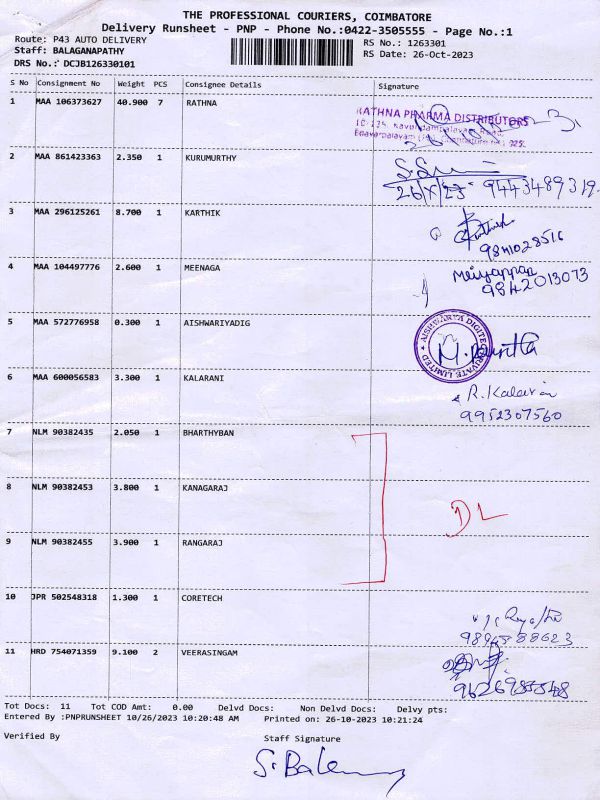 THE PROFESSIONAL COURIERS, COIMBATORE
Delivery Runsheet - PNP - Phone No.:0422-3505555 - Page No.:1
Route: P43 AUTO DELIVERY
RS No.: 1263301
Staff: BALAGANAPATHY
RS Date: 26-Oct-2023
DRS No.: DCJB126330101
S No Consignment No Weight PCS Consignee Details Signature
1 MAA 106373627 40.900 7 RATHNA
RATHNA PHARMA DISTRIBUTORS
2 MAA 861423363 2.350 1 KURUMURTHY
26/X/23 - 9443489319
3 MAA 296125261 8.700 1 KARTHIK
Karthik
9841028516
4 MAA 104497776 2.600 1 MEENAGA
Meiyappan
9842013073
5 MAA 572776958 0.300 1 AISHWARIYADIG
6 MAA 600056583 3.300 1 KALARANI
R. Kalarani
9952307560
7 NLM 90382435 2.050 1 BHARTHYBAN
8 NLM 90382453 3.800 1 KANAGARAJ
DL
9 NLM 90382455 3.900 1 RANGARAJ
10 JPR 502548318 1.300 1 CORETECH
11 HRD 754071359 9.100 2 VEERASINGAM
Tot Docs: 11 Tot COD Amt: 0.00 Delvd Docs: Non Delvd Docs: Delvy pts:
Entered By :PNPRUNSHEET 10/26/2023 10:20:48 AM Printed on: 26-10-2023 10:21:24
Verified By Staff Signature